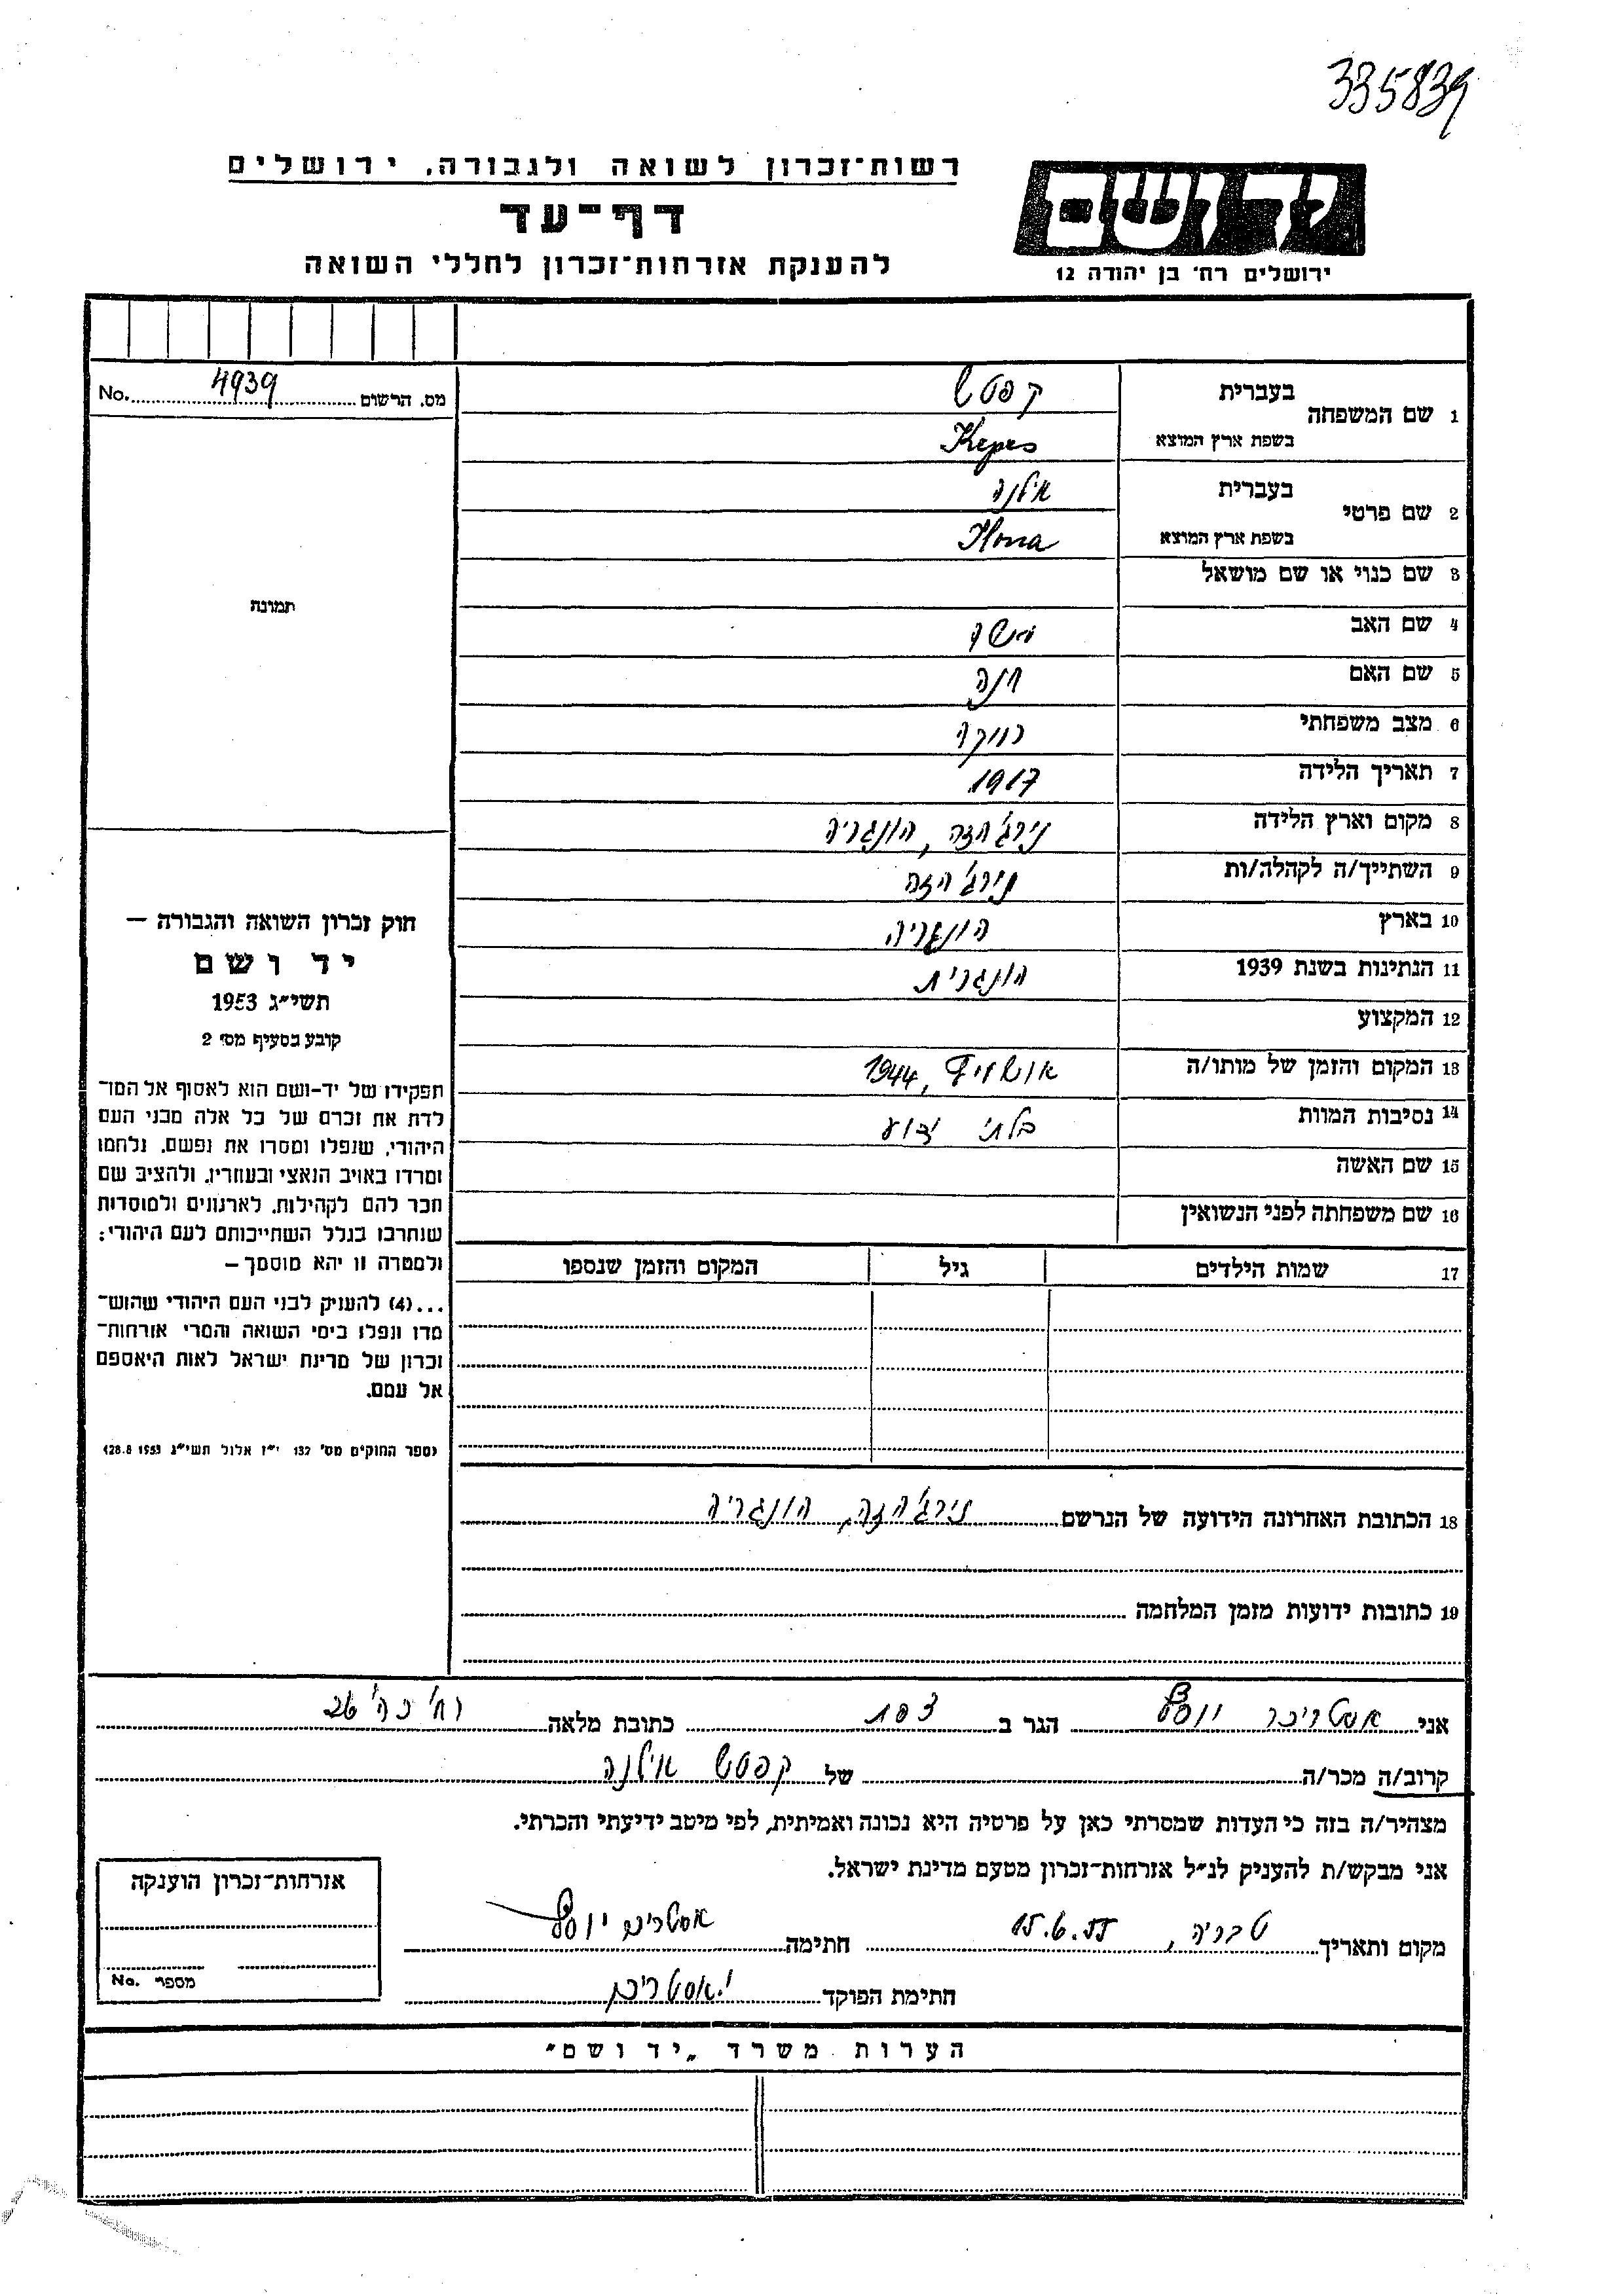 335839
רשות־זכרון לשואה ולגבורה, ירושלים
יד ושם
דף־עד
להענקת אזרחות־זכרון לחללי השואה
ירושלים רח׳ בן יהודה 12
מס. הרשום 4939 No.
1 שם המשפחה
בעברית קפטש
בשפת ארץ המוצא Kepes
2 שם פרטי
בעברית אילנה
בשפת ארץ המוצא Ilona
3 שם כנוי או שם מושאל
4 שם האב משה
5 שם האם חנה
6 מצב משפחתי רווקה
7 תאריך הלידה 1917
8 מקום וארץ הלידה נירג׳הזה, הונגריה
9 השתייך/ה לקהלה/ות נירג׳הזה
10 בארץ הונגריה
11 הנתינות בשנת 1939 הונגרית
12 המקצוע
13 המקום והזמן של מותו/ה אושוויץ, 1944
14 נסיבות המוות בלתי ידוע
15 שם האשה
16 שם משפחתה לפני הנשואין
17 שמות הילדים גיל המקום והזמן שנספו
תמונה
חוק זכרון השואה והגבורה –
יד ושם
תשי״ג 1953
קובע בסעיף מס׳ 2
תפקידו של יד-ושם הוא לאסוף אל המו־
לדת את זכרם של כל אלה מבני העם
היהודי, שנפלו ומסרו את נפשם, נלחמו
ומרדו באויב הנאצי ובעוזריו, ולהציב שם
וזכר להם לקהילות, לארגונים ולמוסדות
שנחרבו בגלל השתייכותם לעם היהודי;
ולמטרה זו יהא מוסמך –
...(4) להעניק לבני העם היהודי שהוש־
מדו ונפלו בימי השואה והמרי אזרחות־
זכרון של מדינת ישראל לאות היאספם
אל עמם.
(ספר החוקים מס׳ 132 י״ז אלול תשי״ג 28.8.1953)
18 הכתובת האחרונה הידועה של הנרשם נירג׳הזה, הונגריה
19 כתובות ידועות מזמן המלחמה
אני אסטרייכר יוסף הגר ב צפת כתובת מלאה רח׳ כה׳ 26
קרוב/ה מכר/ה של קפטש אילנה
מצהיר/ה בזה כי העדות שמסרתי כאן על פרטיה היא נכונה ואמיתית, לפי מיטב ידיעתי והכרתי.
אני מבקש/ת להעניק לנ״ל אזרחות־זכרון מטעם מדינת ישראל.
מקום ותאריך טבריה, 15.6.55 חתימה אסטרייכר יוסף
חתימת הפוקד
אזרחות־זכרון הוענקה
מספר No.
הערות משרד „יד ושם״